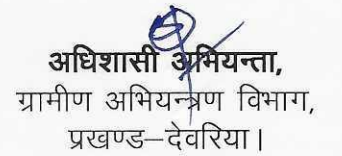 अधिशासी अभियन्ता,
ग्रामीण अभियन्त्रण विभाग,
प्रखण्ड–देवरिया।